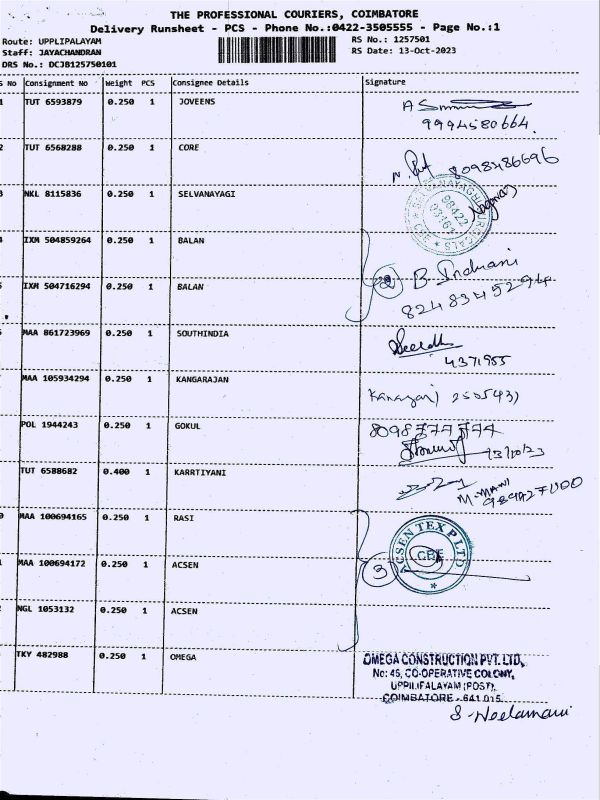 THE PROFESSIONAL COURIERS, COIMBATORE
Delivery Runsheet - PCS - Phone No.:0422-3505555 - Page No.:1
Route: UPPLIPALAYAM
Staff: JAYACHANDRAN
DRS No.: DCJB125750101
RS No.: 1257501
RS Date: 13-Oct-2023
S No Consignment No Weight PCS Consignee Details Signature
1 TUT 6593879 0.250 1 JOVEENS
9994580664
2 TUT 6568288 0.250 1 CORE
8098486696
3 NKL 8115836 0.250 1 SELVANAYAGI
98422
4 IXM 504859264 0.250 1 BALAN
5 IXM 504716294 0.250 1 BALAN
2 B. Indrani
8248345294
MAA 861723969 0.250 1 SOUTHINDIA
4371955
MAA 105934294 0.250 1 KANGARAJAN
POL 1944243 0.250 1 GOKUL
8098777774
13/10/23
TUT 6588682 0.400 1 KARRTIYANI
M. MANI
0 MAA 100694165 0.250 1 RASI
1 MAA 100694172 0.250 1 ACSEN
3 ACSEN TEX P LTD
CBE
2 NGL 1053132 0.250 1 ACSEN
TKY 482988 0.250 1 OMEGA
OMEGA CONSTRUCTION PVT. LTD,
No: 45, CO-OPERATIVE COLONY,
UPPILIPALAYAM (POST),
COIMBATORE - 641 015.
S. Neelamani